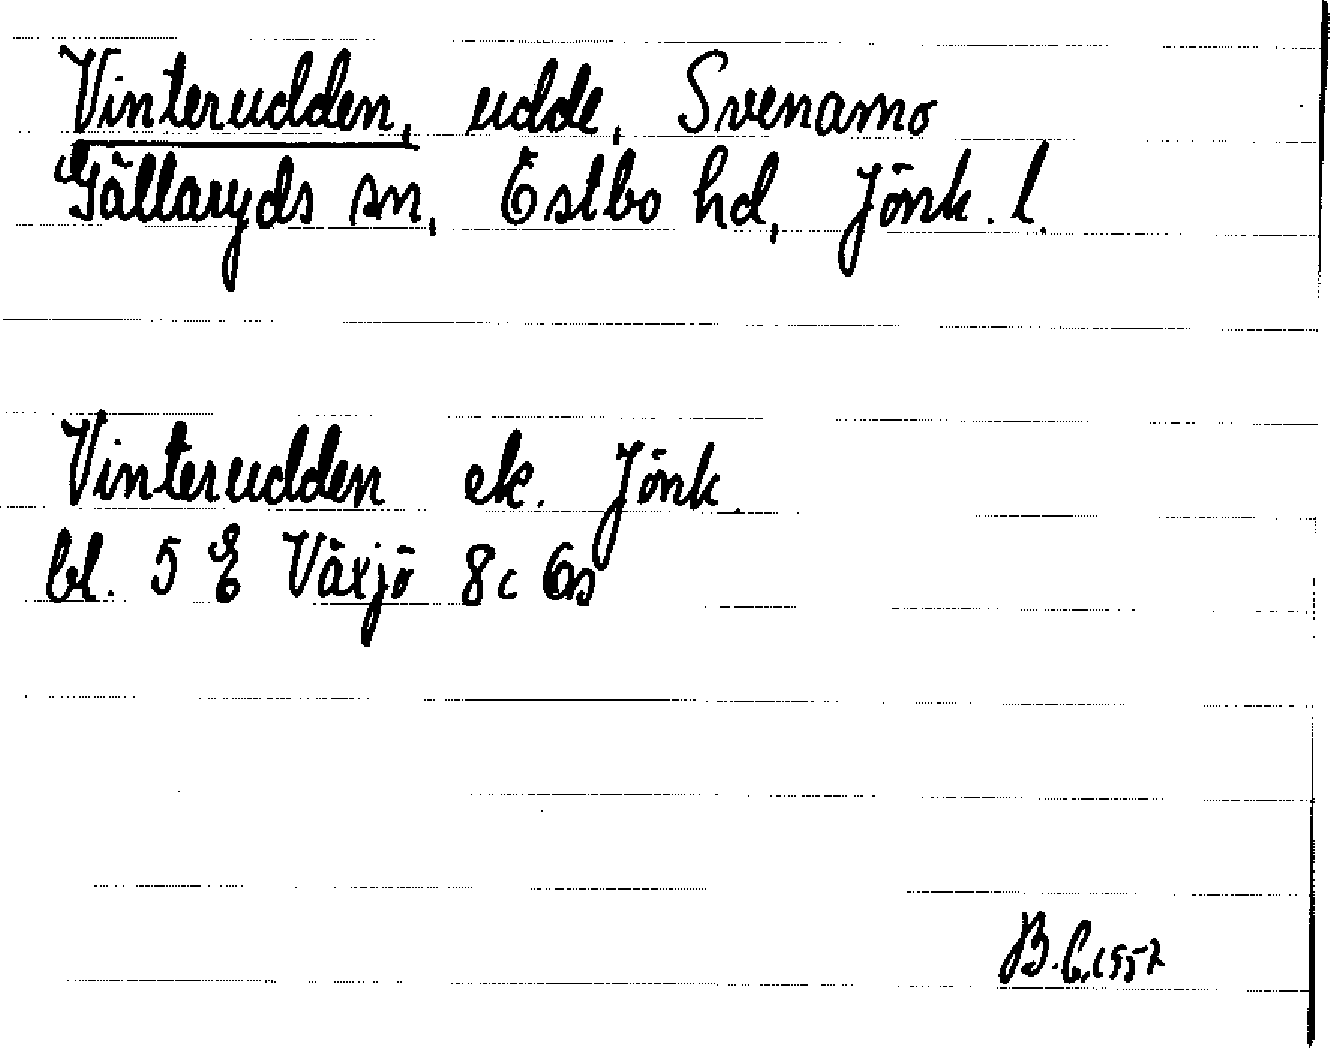 Vinterudden, udde, Svenamo
Gällaryds sn, Östbo hd, Jönk. l.
Vinterudden ek. Jönk.
bl. 5 E Växjö 8c
B.E. 1957